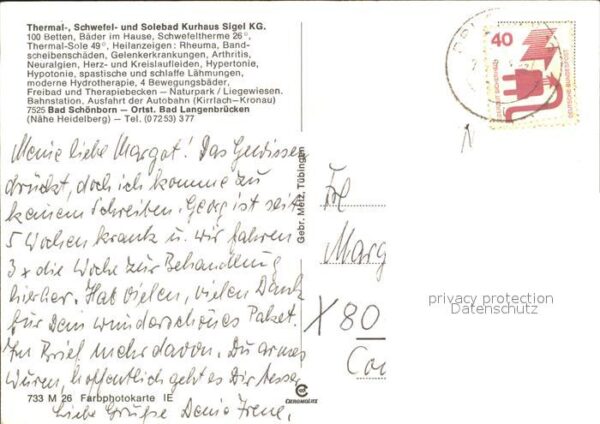 Thermal-, Schwefel- und Solebad Kurhaus Sigel KG.
100 Betten, Bäder im Haus, Schwefeltherme 26°,
Thermal-Sole 49°, Heilanzeigen: Rheuma, Band-
scheibenschäden, Gelenkerkrankungen, Arthritis,
Neuralgien, Herz- und Kreislaufleiden, Hypertonie,
Hypotonie, spastische und schlaffe Lähmungen,
moderne Hydrotherapie, 4 Bewegungsbäder,
Freibad und Therapiebecken – Naturpark / Liegewiesen.
Bahnstation. Ausfahrt der Autobahn (Kirrlach-Kronau)
7525 Bad Schönborn – Ortst. Bad Langenbrücken
(Nähe Heidelberg) – Tel. (07253) 377
Meine liebe Margot! Das Gewissen
drückt, doch ich komme zu
keinem Schreiben. Georg ist seit
5 Wochen krank u. wir fahren
3x die Woche zur Behandlung
hierher. Hab vielen, vielen Dank
für Dein wunderschönes Paket.
Im Brief mehr davon. Du armes
hoffentlich geht es Dir besser
Liebe Grüße Deine Irene.
733 M 26 Farbphotokarte IE
Gebr. Metz, Tübingen
CEKOMOERZ
40
DEUTSCHE BUNDESPOST
Frl
Marg
X 80
privacy protection
Datenschutz